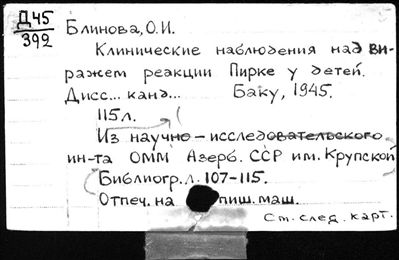 Д45
392
Блинова, О.И.
Клинические наблюдения над ви-
ражем реакции Пирке у детей.
Дисс... канд... Баку, 1945.
115 л.
Из научно-исследовательского
ин-та ОММ Азерб. ССР им. Крупской
Библиогр. л. 107-115.
Отпеч. на пиш. маш.
См. след. карт.